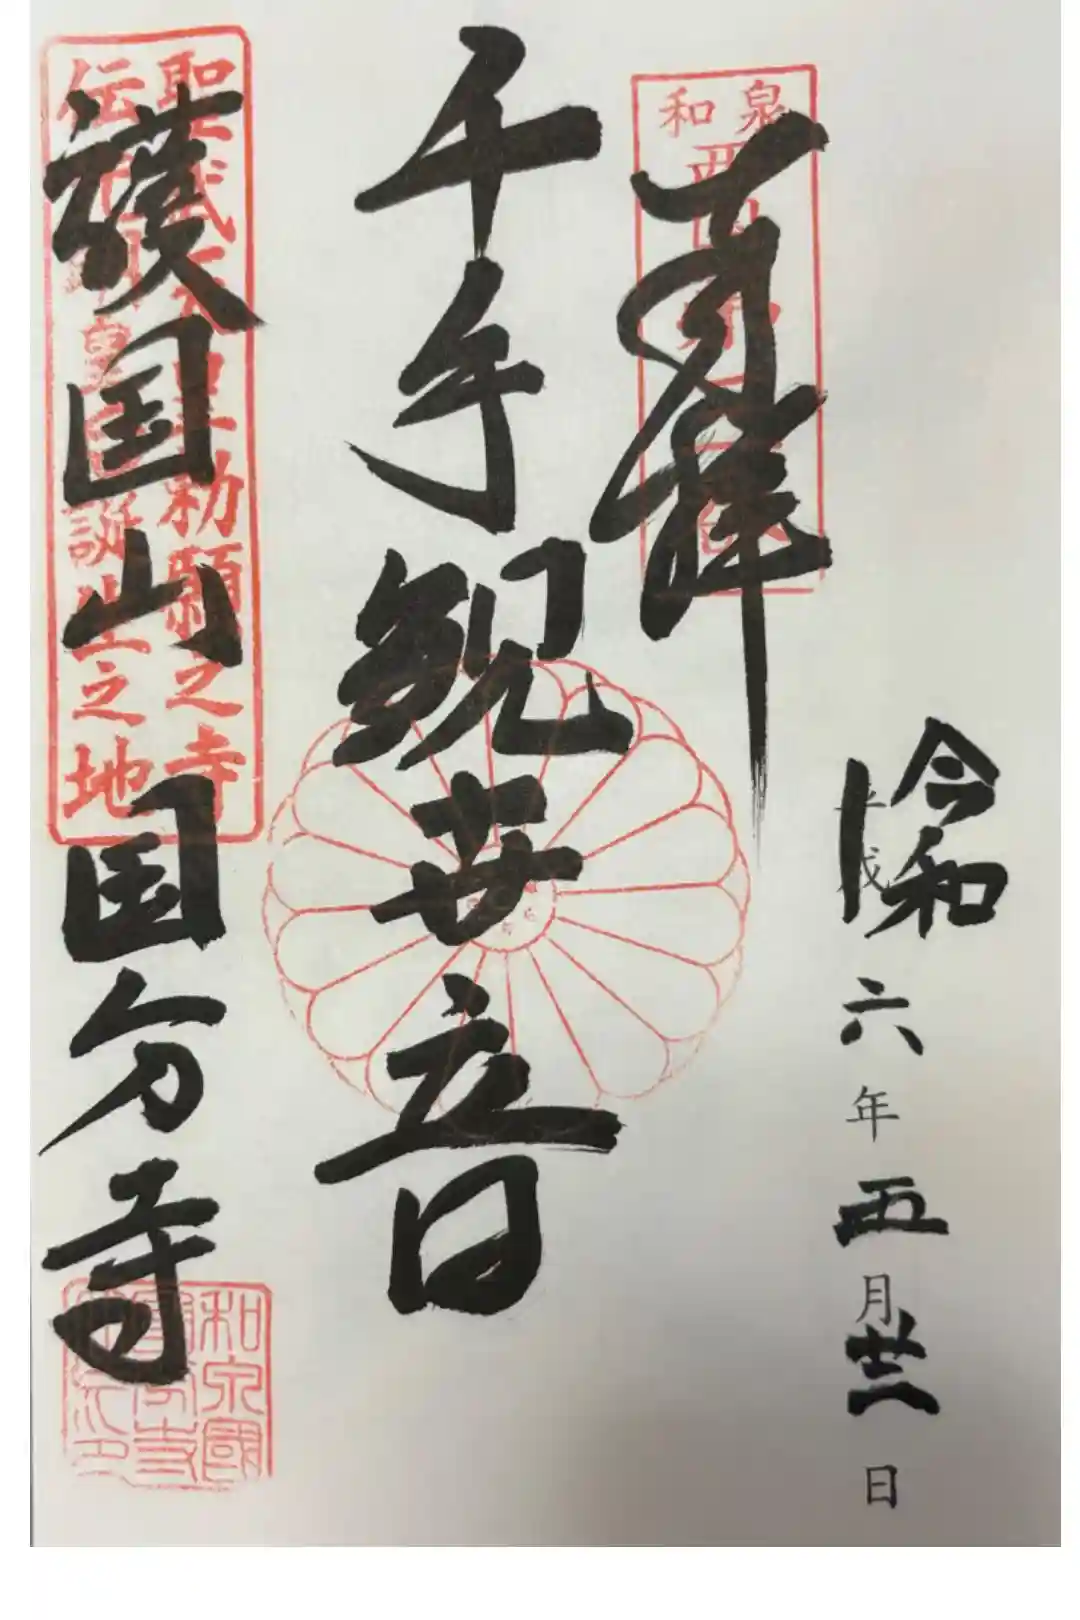 令和六年五月廿日
平成
奉拝
和泉西国
千手観世音
護国山国分寺
聖武天皇勅願之寺
伝光明皇后誕生之地
和泉國